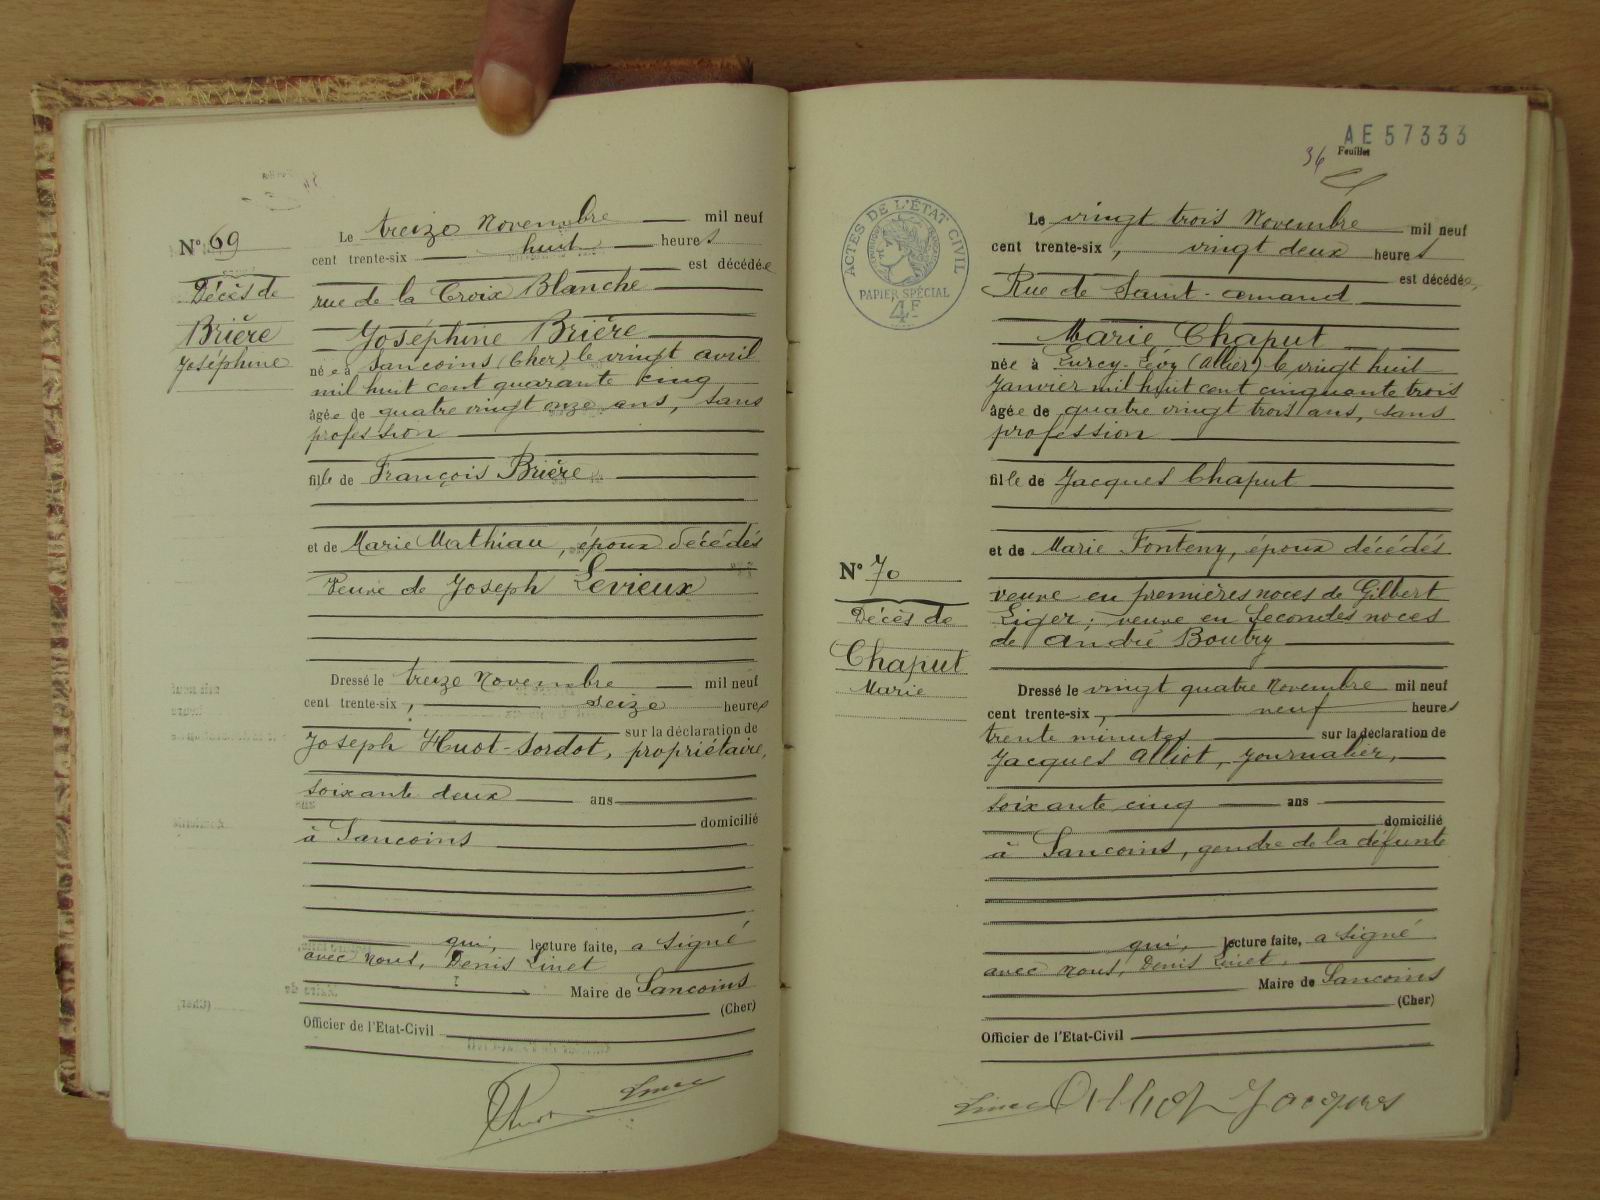 N° 69
Décès de
Brière
Joséphine
Le treize Novembre mil neuf
cent trente-six huit heures
est décédée
rue de la Croix Blanche
Joséphine Brière
née à Sancoins (Cher) le vingt avril
mil huit cent quarante cinq
âgée de quatre vingt onze ans, sans
profession
fille de François Brière
et de Marie Mathiau, époux décédés
Veuve de Joseph Levieux
Dressé le treize Novembre mil neuf
cent trente-six, seize heures
sur la déclaration de
Joseph Huot-Sordot, propriétaire,
soixante deux ans
domicilié
à Sancoins
qui, lecture faite, a signé
avec nous, Denis Linet
Maire de Sancoins
(Cher)
Officier de l'Etat-Civil
AE 57333
36 Feuillet
ACTES DE L'ÉTAT CIVIL
PAPIER SPÉCIAL
4F
N° 70
Décès de
Chaput
Marie
Le vingt trois Novembre mil neuf
cent trente-six, vingt deux heures
est décédée,
Rue de Saint-amand
Marie Chaput
née à Lurcy-Lévy (Allier) le vingt huit
Janvier mil huit cent cinquante trois
âgée de quatre vingt trois ans, sans
profession
fille de Jacques Chaput
et de Marie Fonteny, époux décédés
veuve en premières noces de Gilbert
Liger; veuve en Secondes noces
de André Boutry
Dressé le vingt quatre Novembre mil neuf
cent trente-six, neuf heures
trente minutes sur la déclaration de
Jacques Alliot, Journalier,
soixante cinq ans
domicilié
à Sancoins, gendre de la défunte
qui, lecture faite, a signé
avec nous, Denis Linet,
Maire de Sancoins
(Cher)
Officier de l'Etat-Civil
Alliot Jacques